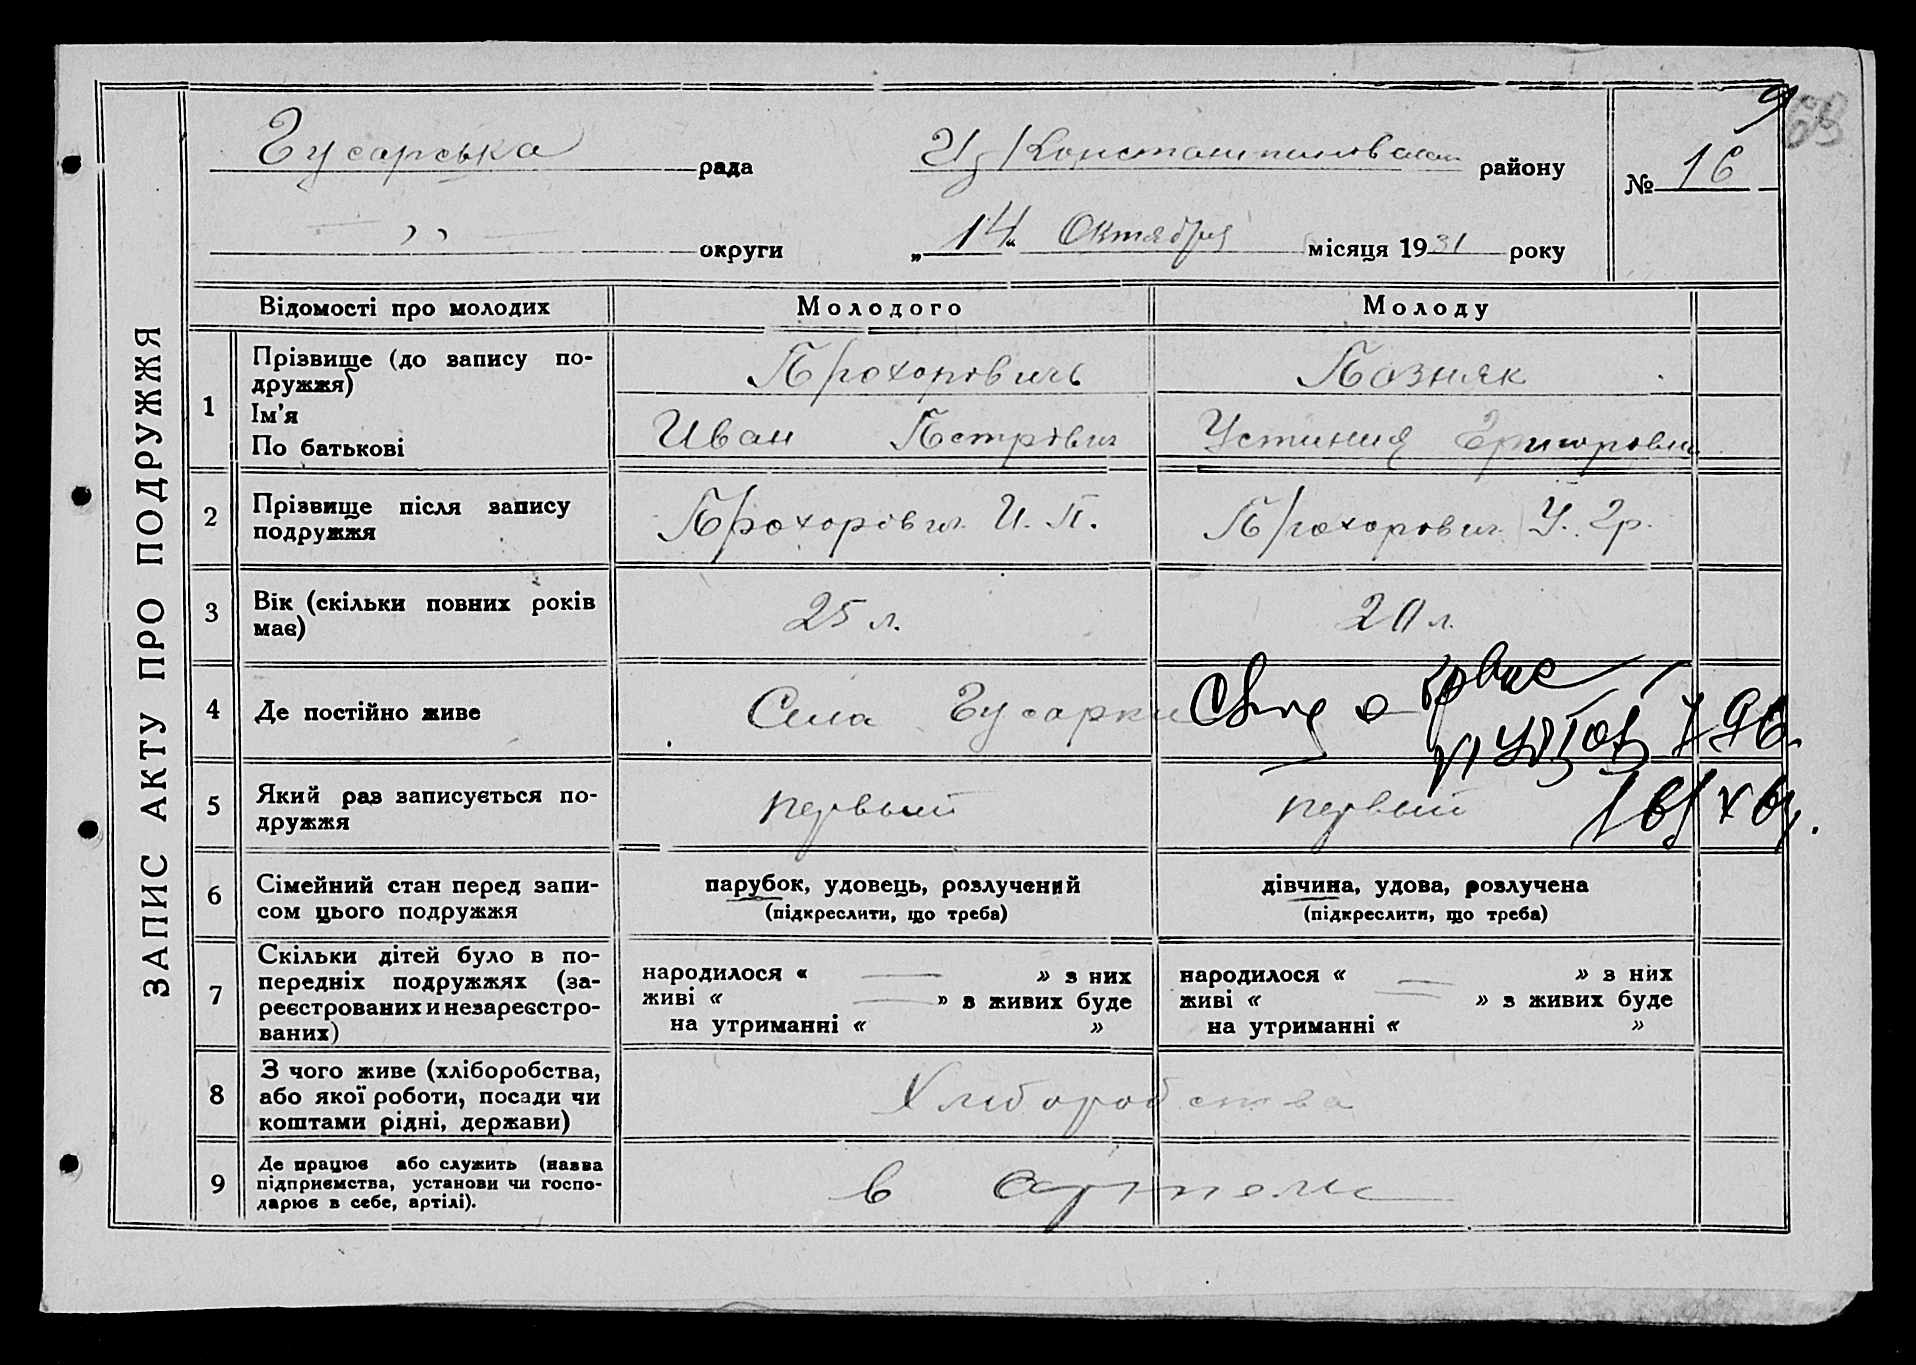 ЗАПИС АКТУ ПРО ПОДРУЖЖЯ
Гусарська рада
района
района району
„ округи
„14“ Октября місяця 1931 року
№ 16
9
63
Відомості про молодих
Молодого
Молоду
1
Прізвище (до запису по-
дружжя)
Ім'я
По батькові
Прохорович
Позняк
Иван Петрович
Устиния Григоровна
2
Прізвище після запису
подружжя
Прохорович И. П.
Прохорович У. Гр.
3
Вік (скільки повних років
має)
25 л.
20 л.
4
Де постійно живе
Села Гусарки
5
Який раз записується по-
дружжя
первый
первый
6
Сімейний стан перед запи-
сом цього подружжя
парубок, удовець, розлучений
(підкреслити, що треба)
дівчина, удова, розлучена
(підкреслити, що треба)
7
Скільки дітей було в по-
передніх подружжях (за-
реєстрованих и незареєстро-
ваних)
народилося « — » з них
живі « — » з живих буде
на утриманні « »
народилося « — » з них
живі « — » з живих буде
на утриманні « »
8
З чого живе (хліборобства,
або якої роботи, посади чи
коштами рідні, держави)
Хліборобства
9
Де працює або служить (назва
підприємства, установи чи госпо-
дарює в себе, артілі).
в артели